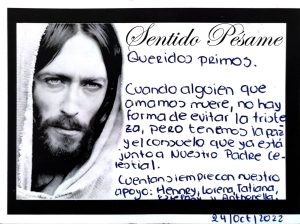 Sentido Pésame
Queridos primos.
Cuando alguien que
amamos muere, no hay
forma de evitar la triste
za, pero tenemos la paz
y el consuelo que ya está
junto a Nuestro Padre Ce
lestial.
Cuentan siempre con nuestro
apoyo: Henney, Lorena, Tatiana,
y Anthonella.
24/Oct/2022